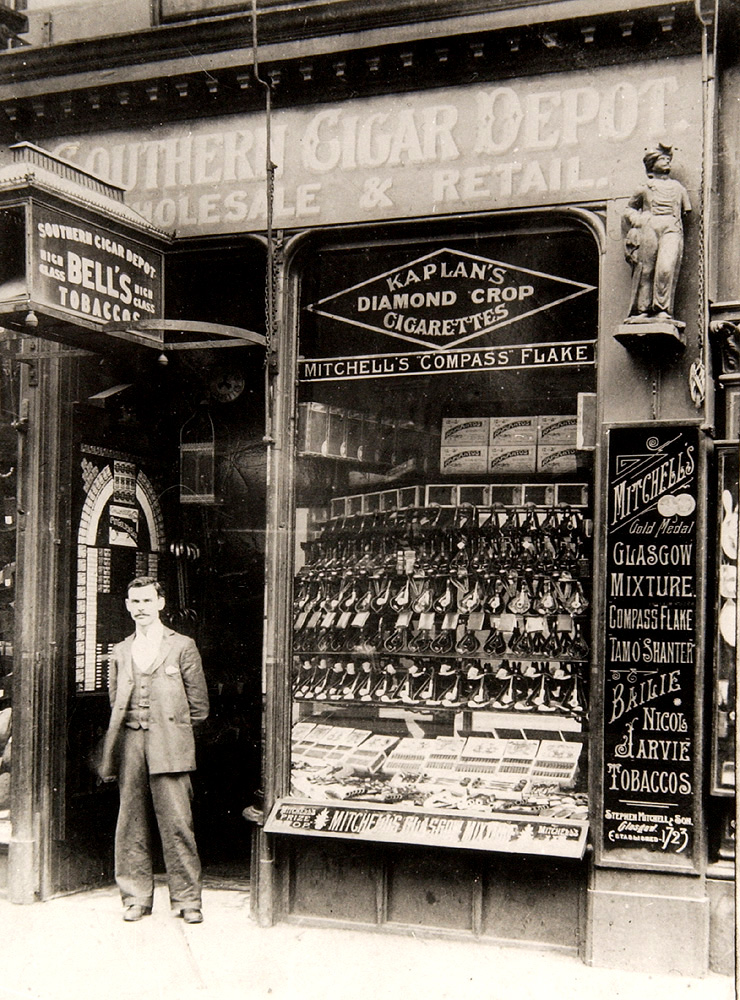 SOUTHERN CIGAR DEPOT.
WHOLESALE & RETAIL.
SOUTHERN CIGAR DEPOT.
HIGH CLASS BELL'S HIGH CLASS
TOBACCOS
KAPLAN'S
DIAMOND CROP
CIGARETTES
MITCHELL'S "COMPASS" FLAKE
MITCHELL'S
Gold Medal
GLASGOW
MIXTURE.
COMPASS FLAKE
TAM O'SHANTER
BAILIE
NICOL
JARVIE
TOBACCOS.
STEPHEN MITCHELL & SON.
Glasgow.
ESTABLISHED 1723
PRIZE MITCHELL'S GLASGOW MIXTURE MITCHELL'S